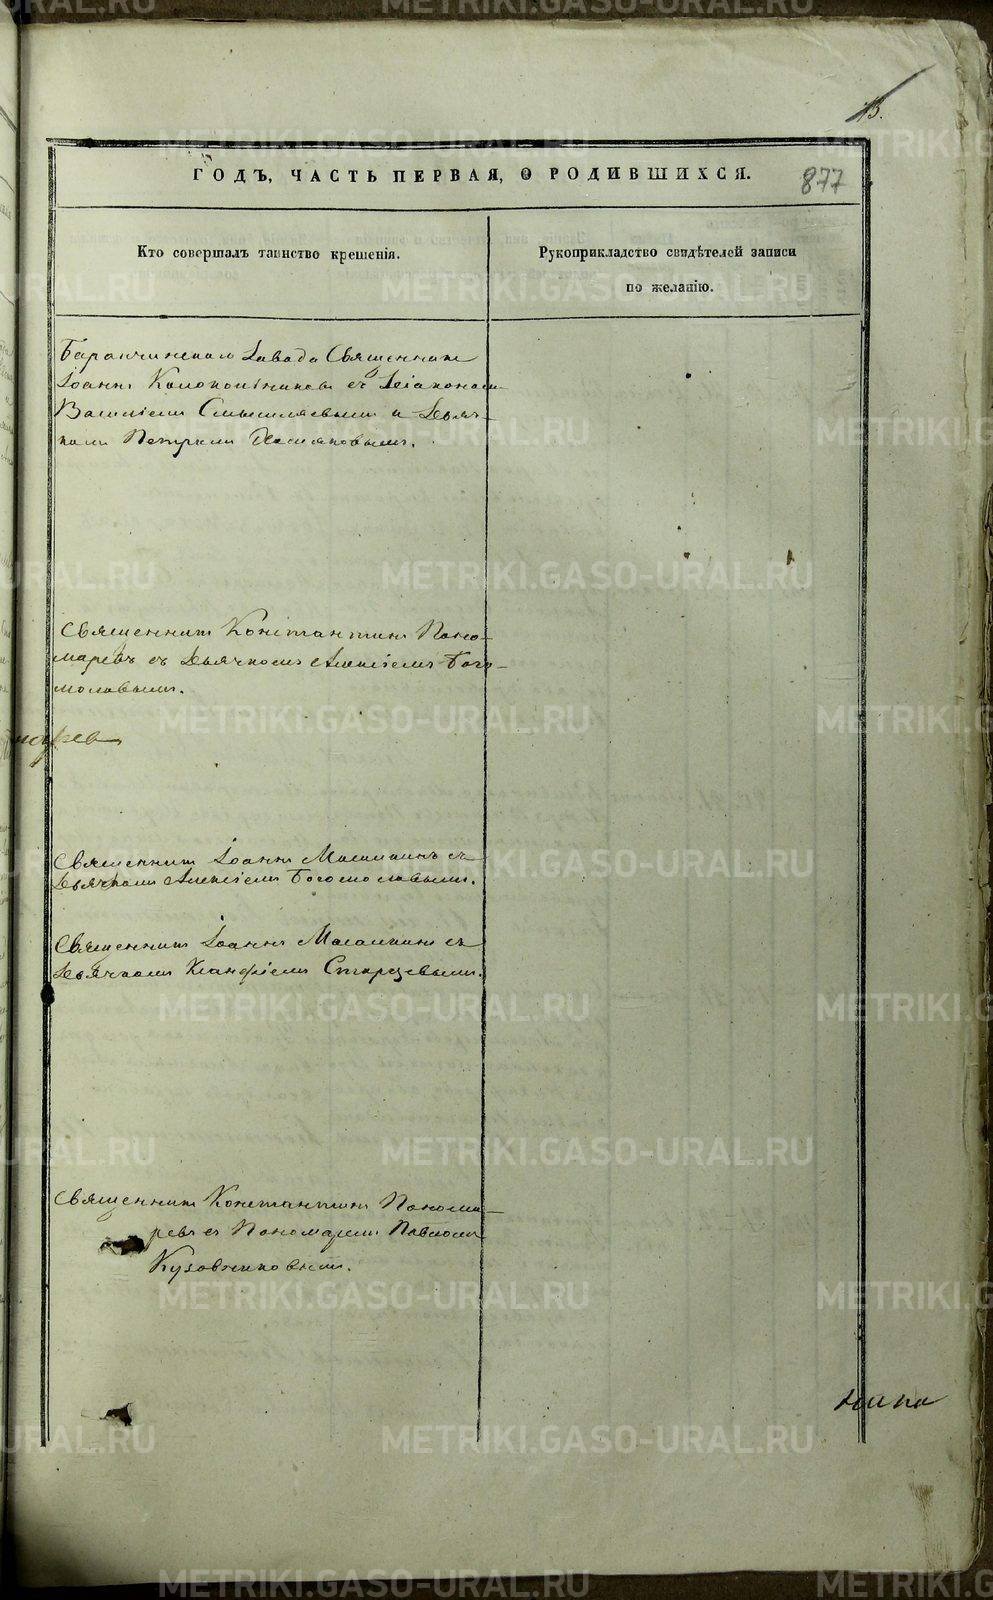 13.
ГОДЪ, ЧАСТЬ ПЕРВАЯ, О РОДИВШИХСЯ.
877
Кто совершалъ таинство крещенія.
Рукоприкладство свидѣтелей записи
по желанію.
Баранчинскаго Завода Священникъ
Іоаннъ Колокольниковъ съ Діакономъ
Василіемъ Смышляевымъ и Дьяч-
комъ Петромъ
Священникъ Константинъ Поно-
маревъ съ Дьячкомъ Алексіемъ Бого-
моловымъ.
Священникъ Іоаннъ съ
Дьячкомъ Алексіемъ Богомоловымъ.
Священникъ Іоаннъ съ
Дьячкомъ Старцевымъ.
Священникъ Константинъ Понома-
ревъ съ Пономаремъ Павломъ
Кузовниковымъ.
METRIKI.GASO-URAL.RU